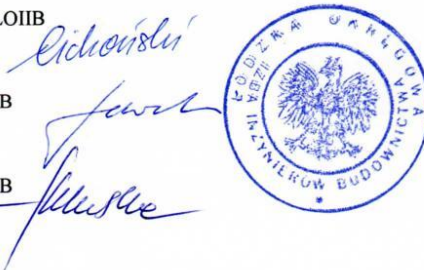 LOIIB
Cichoński
B
B
ŁÓDZKA OKRĘGOWA
IZBA INŻYNIERÓW BUDOWNICTWA